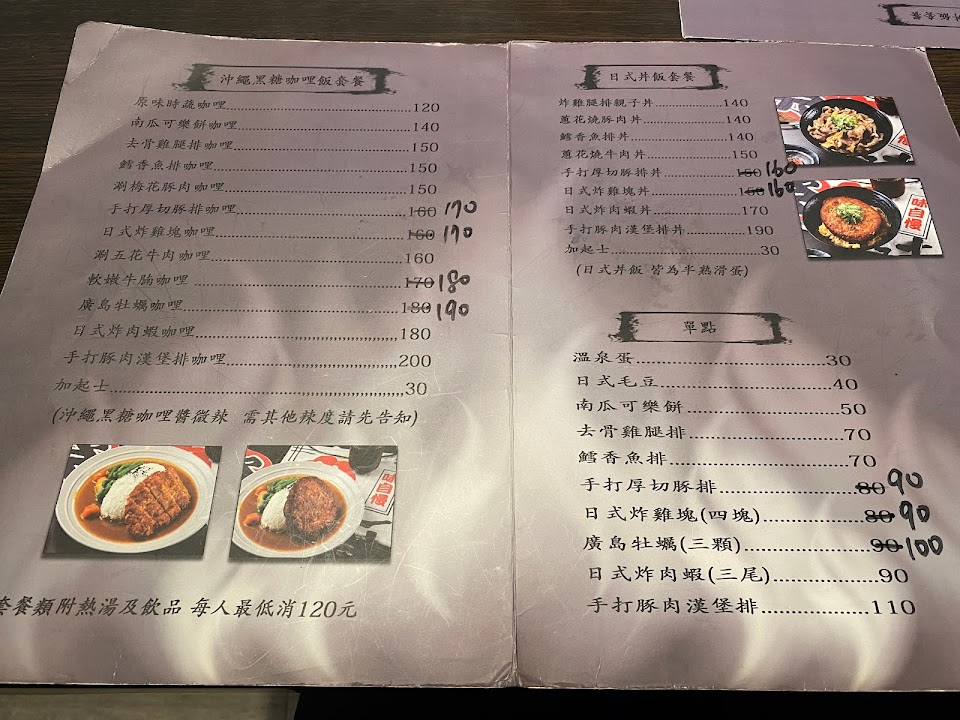 沖繩黑糖咖哩飯套餐
原味時蔬咖哩..........120
南瓜可樂餅咖哩..........140
去骨雞腿排咖哩..........150
鱈香魚排咖哩..........150
涮梅花豚肉咖哩..........150
手打厚切豚排咖哩..........160 170
日式炸雞塊咖哩..........160 170
涮五花牛肉咖哩..........160
軟嫩牛腩咖哩..........170 180
廣島牡蠣咖哩..........180 190
日式炸肉蝦咖哩..........180
手打豚肉漢堡排咖哩..........200
加起士..........30
(沖繩黑糖咖哩醬微辣 需其他辣度請先告知)
味自慢
套餐類附熱湯及飲品 每人最低消120元
日式丼飯套餐
炸雞腿排親子丼..........140
蔥花燒豚肉丼..........140
鱈香魚排丼..........140
蔥花燒牛肉丼..........150
手打厚切豚排丼..........150 160
日式炸雞塊丼..........150 160
日式炸肉蝦丼..........170
手打豚肉漢堡排丼..........190
加起士..........30
(日式丼飯 皆為半熟滑蛋)
味自慢
單點
溫泉蛋..........30
日式毛豆..........40
南瓜可樂餅..........50
去骨雞腿排..........70
鱈香魚排..........70
手打厚切豚排..........80 90
日式炸雞塊(四塊)..........80 90
廣島牡蠣(三顆)..........90 100
日式炸肉蝦(三尾)..........90
手打豚肉漢堡排..........110